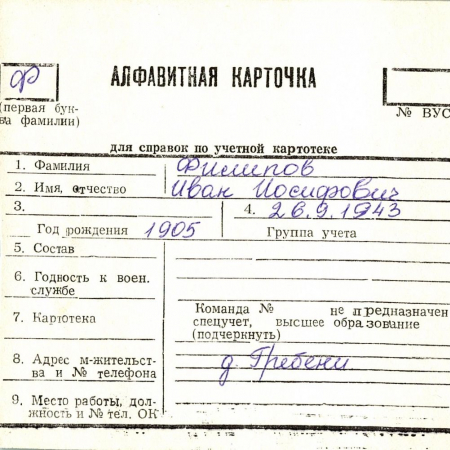 Ф
АЛФАВИТНАЯ КАРТОЧКА
(первая бук-
ва фамилии)
№ ВУС
для справок по учетной картотеке
1. Фамилия Филипов
2. Имя, отчество Иван Иосифович
3. 4. 26.9.1943
Год рождения 1905 Группа учета
5. Состав
6. Годность к воен.
службе
7. Картотека
Команда № не предназначен
спецучет, высшее образование
(подчеркнуть)
8. Адрес м-жительст-
ва и № телефона
д Гребени
9. Место работы, дол-
жность и № тел. ОК